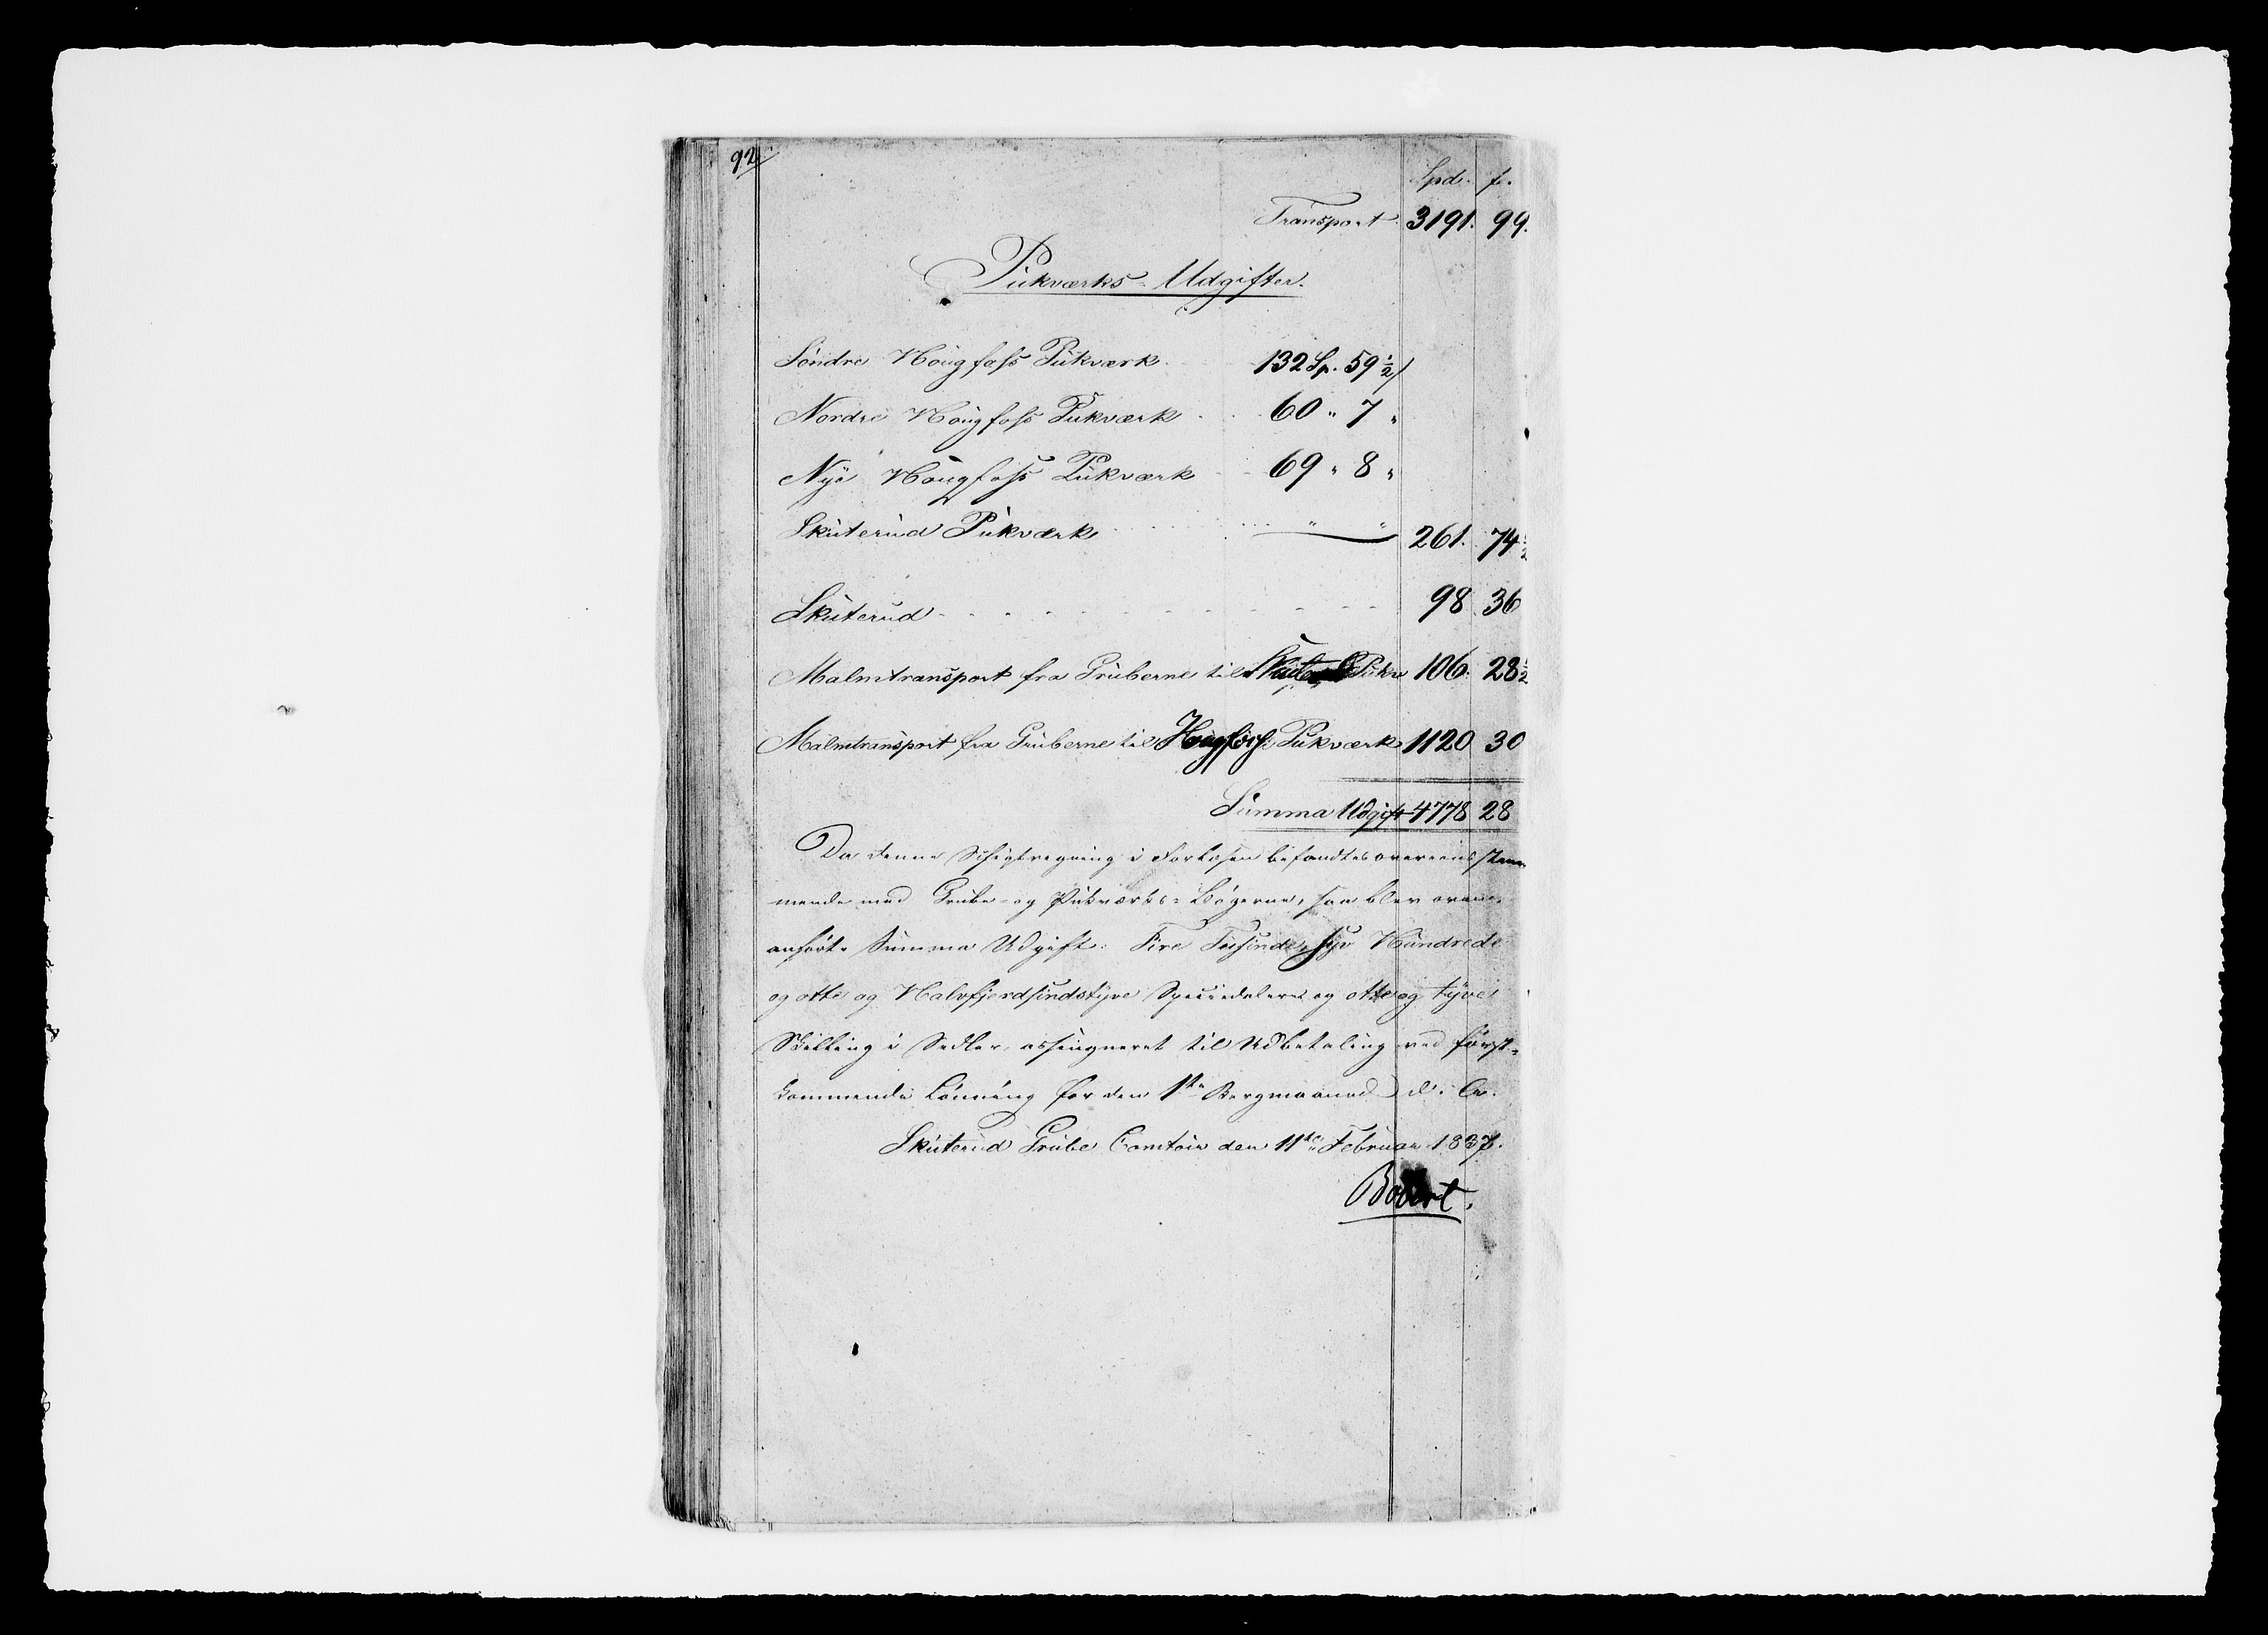 92/
Spd. ß.
Transport 3191. 99.
Pukværks-Udgifter.
Söndre Hougfoss Pukværk 132 Sp. 59 ½ /
Nordre Hougfoss Pukværk 60 " 7 "
Nye Hougfoss Pukværk 69 " 8 "
Skuterud Pukværk " " 261. 74 ½
Skuterud 98 36
Malmtransport fra Gruberne til Skuterud Pukv 106. 28 ½
Malmtransport fra Gruberne til Hougfoss Pukværk 1120 30
Summa Udgift 4778 28
Da denne Schigtregning i Forlæsen befandtes overeensstem-
mende med Grube- og Pukværks-Bögerne, saa blev oven-
anförte Summa Udgift: Fire Tusinde, syv Hundrede
og otte og Halvfjerdsindstyve Speciedaler og otte og tyve
Skilling i Sedler, assigneret til Udbetaling ved först-
kommende Lönning for den 1ste Bergmaaned d. A.
Skuterud Grube Contoir den 11te Februar 1837.
Böbert.